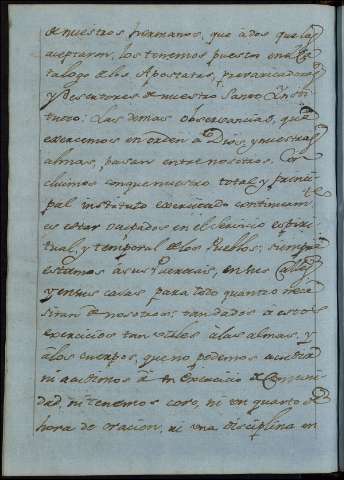 de nuestros hermanos, que à dos que las
aceptaron, los tenemos puestos en el Ca
talogo de los Apostatas, prevaricadores
y desertores de nuestro Santo Insti
tuto: Las demas observancias, que
exercemos en orden à Dios, y nuestras
almas, pasan entre nosotros. Con
cluimos conque nuestro total, y princi
pal instituto exercitado continuam.te
es estar ocupados en el servicio espiri
tual, y temporal de los Pueblos; siempre
estamos à sus Puertas, en sus Calles,
y en sus casas para todo quanto nece
sitan de nosotros; tan dados à estos
exercicios tan utiles à las almas, y
à los cuerpos, que no podemos acudir
ni acudimos à un exercicio de Comuni
dad, ni tenemos coro, ni un quarto de
hora de oracion, ni una disciplina en